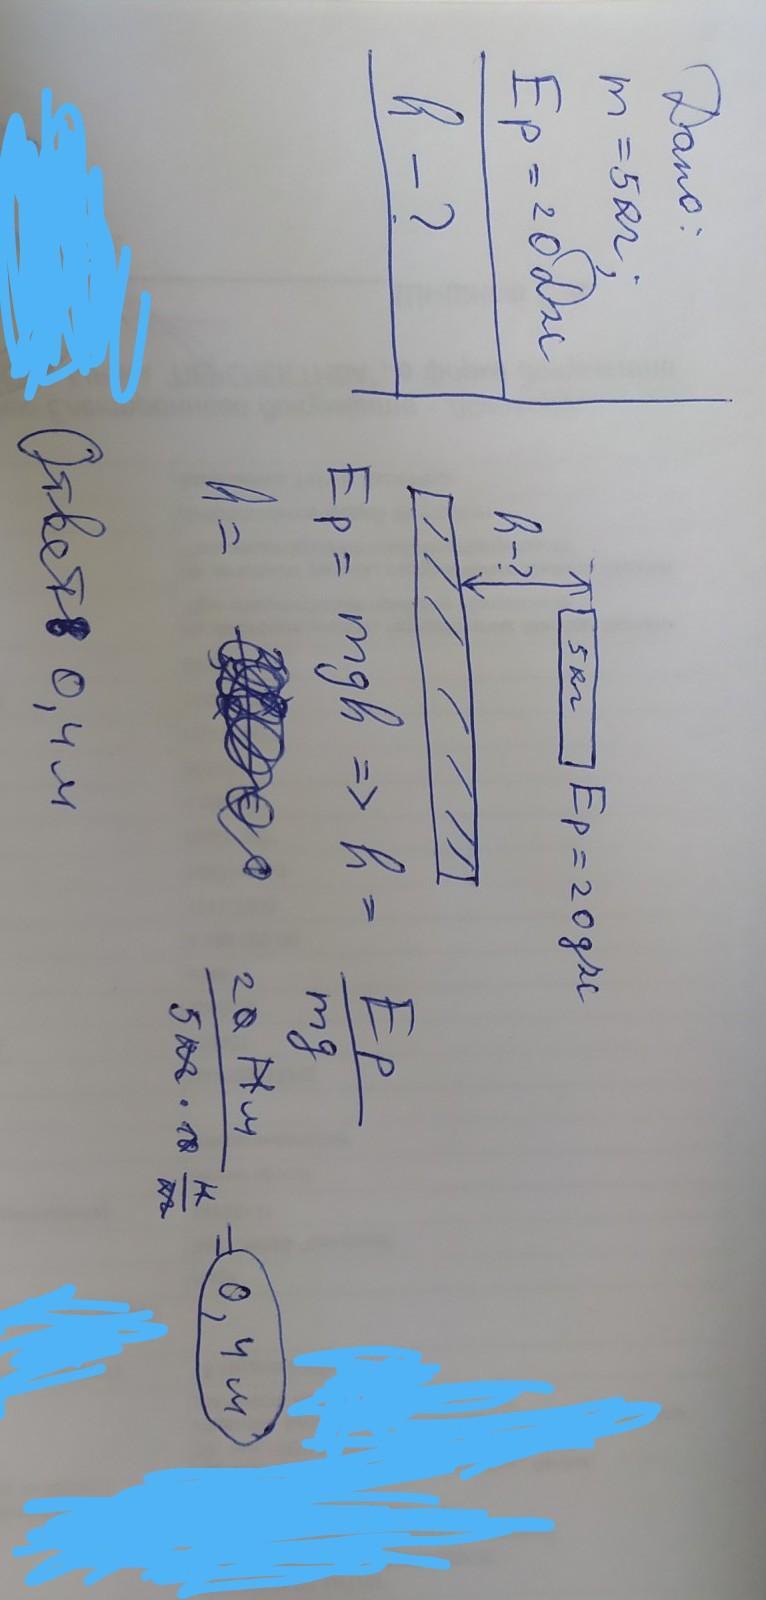 Дано:
m = 5кг;
Ep = 20Дж
h - ?
5кг Ep = 20дж
h - ?
Ep = mgh => h = Ep / mg
h = 20 Нм / 5кг · 10 Н/кг = 0,4 м
Ответ: 0,4 м